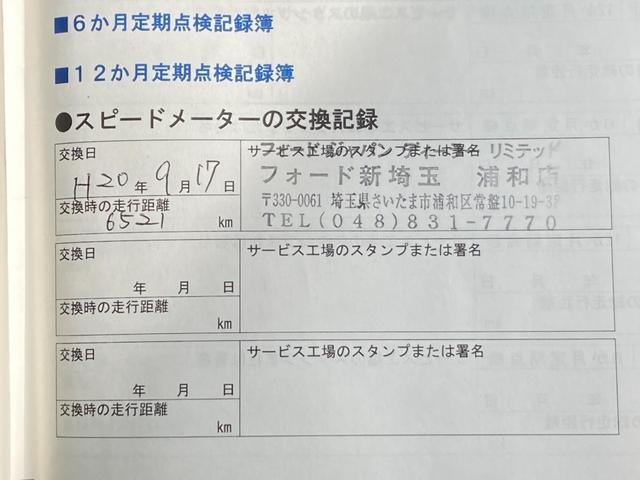 ■6か月定期点検記録簿
■12か月定期点検記録簿
●スピードメーターの交換記録
交換日
H20年9月17日
交換時の走行距離
6521 km
サービス工場のスタンプまたは署名
リミテッド
フォード新埼玉 浦和店
〒330-0061 埼玉県さいたま市浦和区常盤10-19-38
TEL(048)831-7770
交換日
年 月 日
交換時の走行距離
km
サービス工場のスタンプまたは署名
交換日
年 月 日
交換時の走行距離
km
サービス工場のスタンプまたは署名